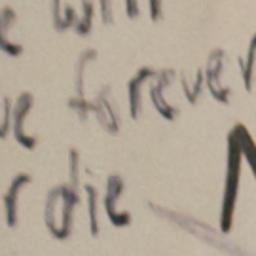 e will
ve forever
r die